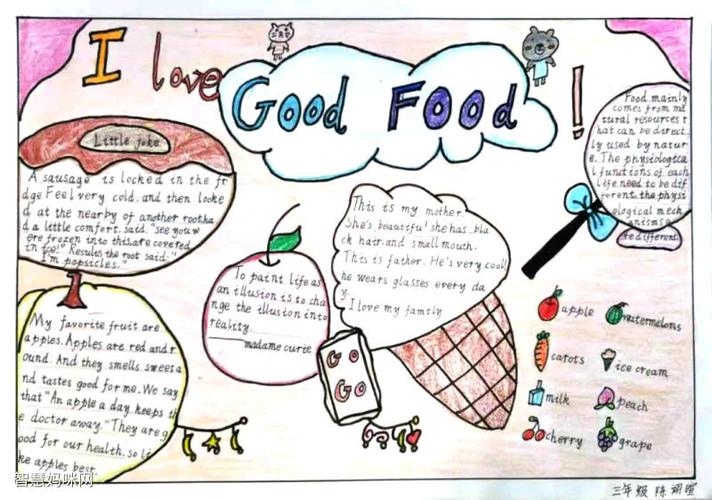 I love
Good Food!
Little joke
A sausage is locked in the fr
dge Feel very cold, and then looke
d at the nearby of another rootha
d a little comfort, said "see you w
ere frozen into this are covered
in ice!" Resules the root said: "
I'm popsicles."
My favorite fruit are
apples. Apples are red and r
ound. And they smells sweet a
nd tastes good for me. We say
that "An apple a day keeps th
e doctor away." They are g
ood for our health. so I
ke apples best
To paint life as
an illusion is to cha
nge the illusion into
reality.
——madame curie
This is my mother.
She's beautiful! she has bla
ck hair and small mouth.
This is father. He's very cool!
he wears glasses every da
y.
I love my family
Go
Go
Food mainly
comes from na
tural resources t
hat can be direct
ly used by natur
e. The physiologica
l functions of each
life need to be dif
ferent. the physi
ological mech
anisms a
re different
apple
watermelons
carots
ice cream
milk
peach
cherry
grape
智慧妈咪网
三年级 陈翊萱